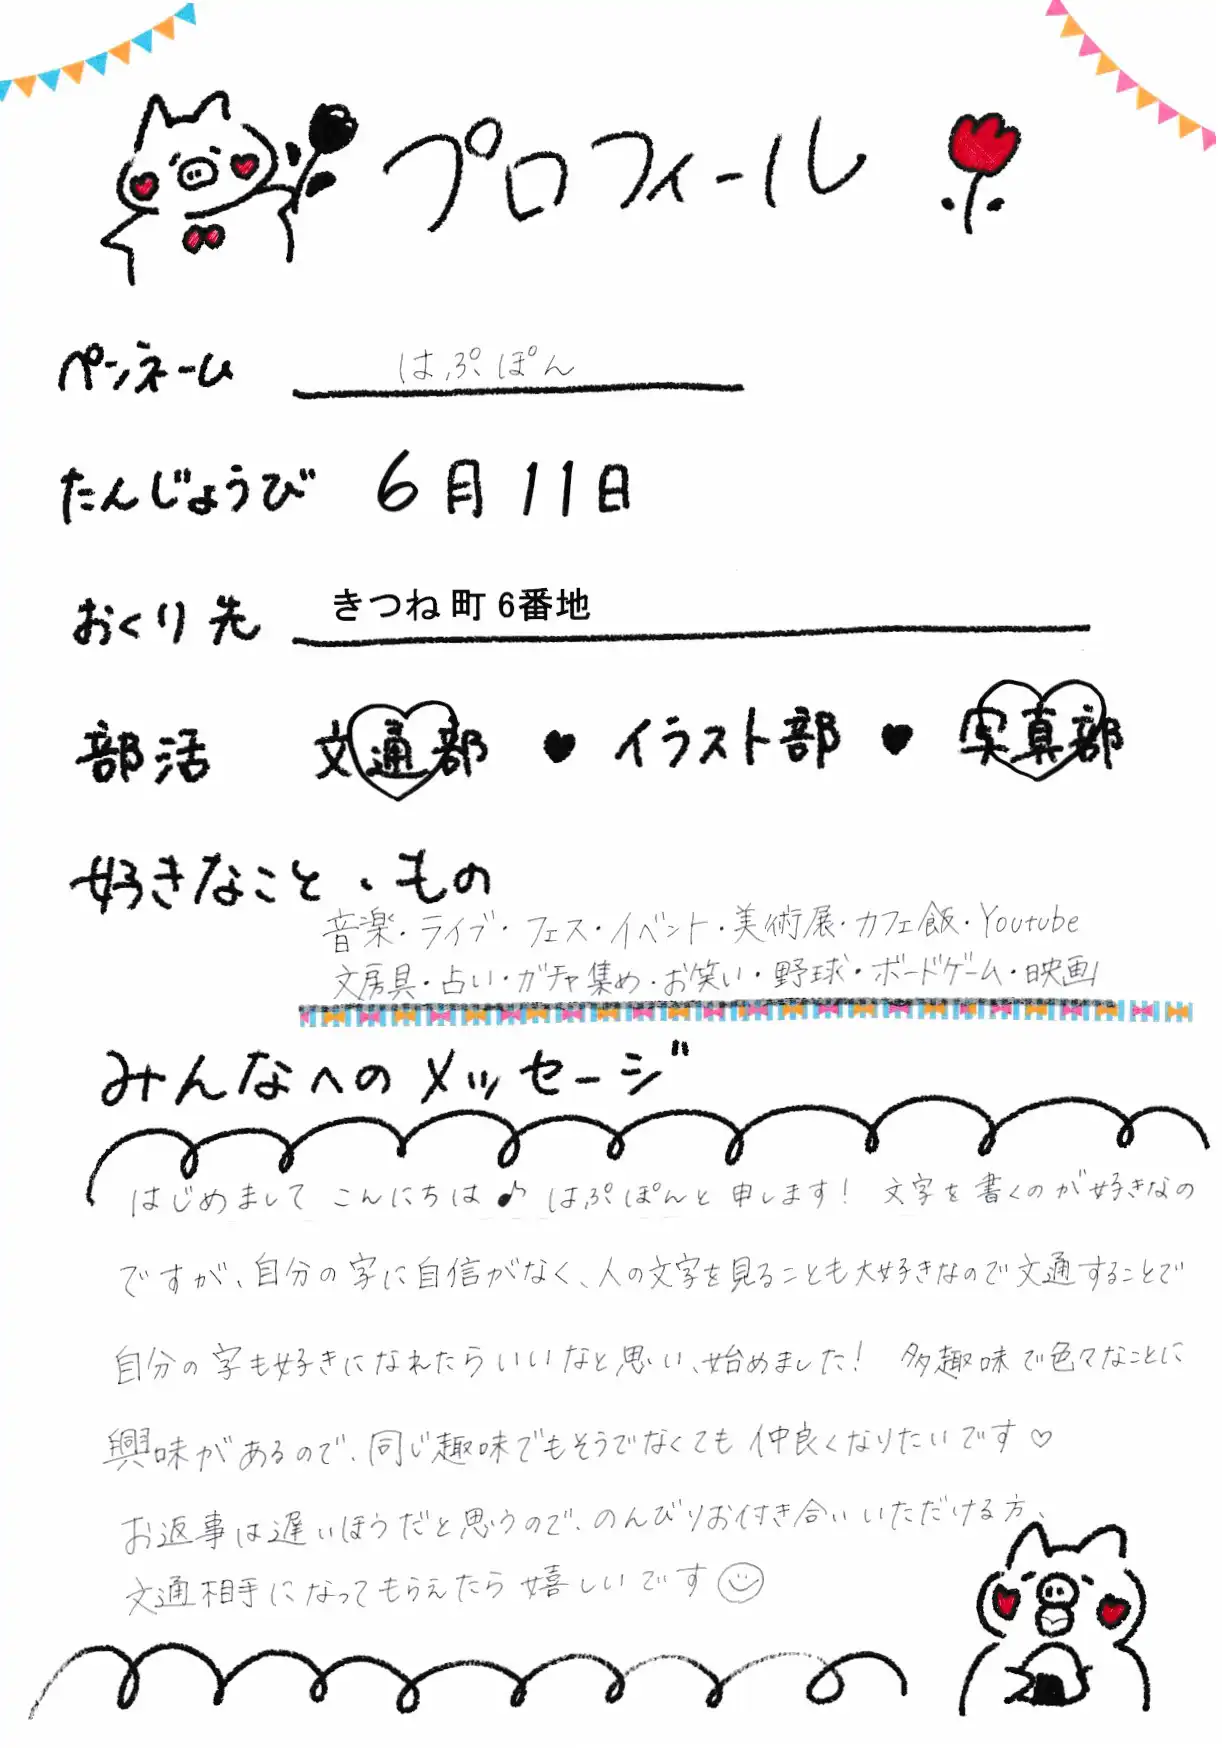 プロフィール
ペンネーム はぷぽん
たんじょうび 6月11日
おくり先 きつね町 6番地
部活 文通部 ♥ イラスト部 ♥ 写真部
好きなこと・もの
音楽・ライブ・フェス・イベント・美術展・カフェ飯・Youtube
文房具・占い・ガチャ集め・お笑い・野球・ボードゲーム・映画
みんなへのメッセージ
はじめまして こんにちは♪ はぷぽんと申します! 文字を書くのが好きなの
ですが、自分の字に自信がなく、人の文字を見ることも大好きなので文通することで
自分の字も好きになれたらいいなと思い、始めました! 多趣味で色々なことに
興味があるので、同じ趣味でもそうでなくても仲良くなりたいです♡
お返事は遅いほうだと思うので、のんびりお付き合いいただける方、
文通相手になってもらえたら嬉しいです☺